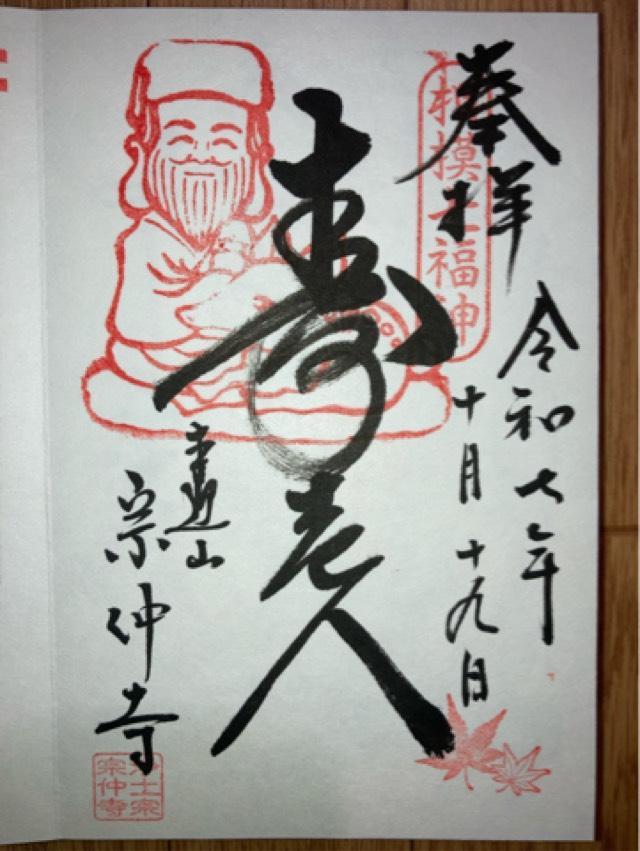 奉拝
相模七福神
令和七年
十月十九日
寿老人
宗仲寺
浄土宗
宗仲寺